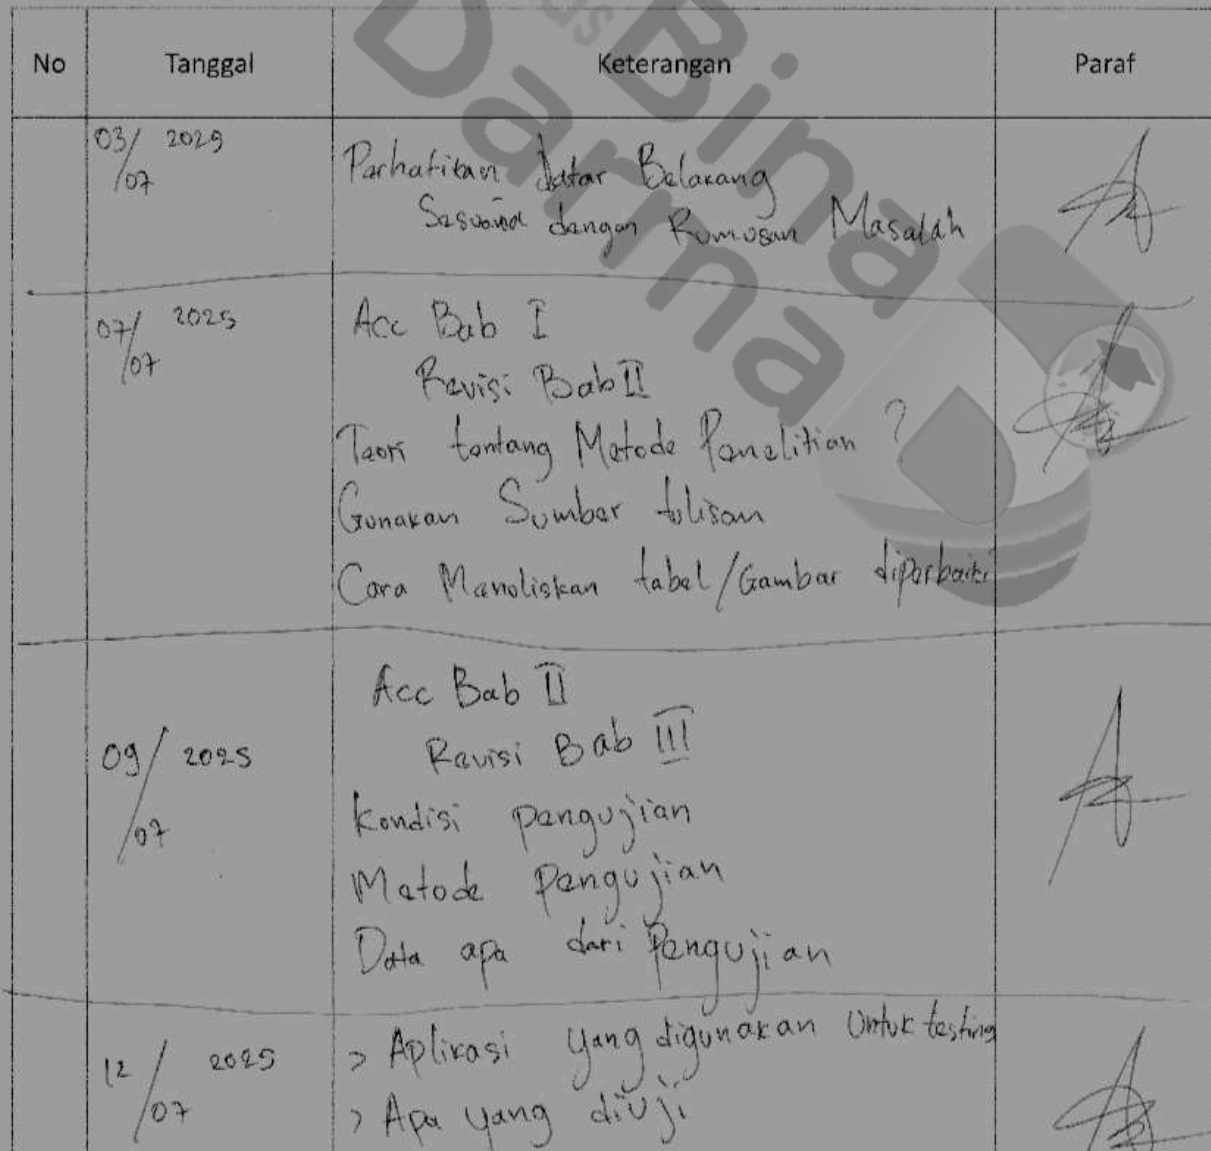 us Bina
Darma
No Tanggal Keterangan Paraf
03/07 2029
Perhatikan Latar Belakang
Sesuaid dengan Rumusan Masalah
07/07 2025
Acc Bab I
Revisi Bab II
Teori tentang Metode Penelitian ?
Gunakan Sumber tulisan
Cara Menuliskan tabel/Gambar diperbaiki
09/07 2025
Acc Bab II
Revisi Bab III
Kondisi pengujian
Metode Pengujian
Data apa dari Pengujian
12/07 2025
> Aplikasi yang digunakan untuk testing
> Apa yang diuji